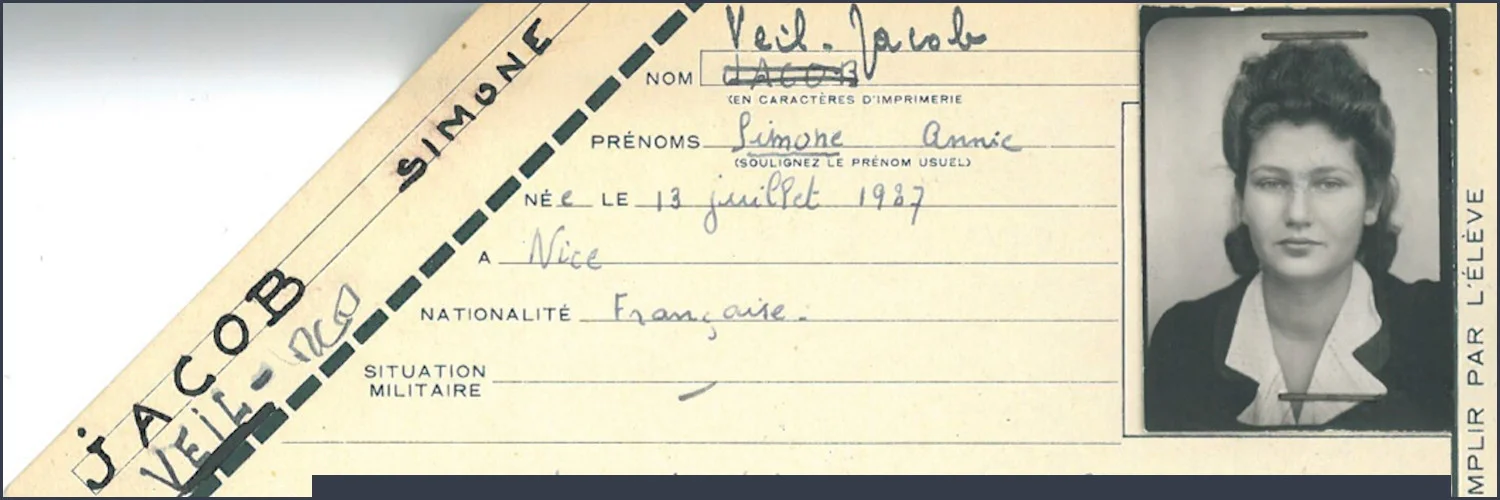 JACOB SIMONE
VEIL-
Veil-Jacob
NOM JACOB
(EN CARACTÈRES D'IMPRIMERIE
PRÉNOMS Simone Annie
(SOULIGNEZ LE PRÉNOM USUEL)
NÉe LE 13 juillet 1927
A Nice
NATIONALITÉ Française.
SITUATION
MILITAIRE –
MPLIR PAR L'ÉLÈVE